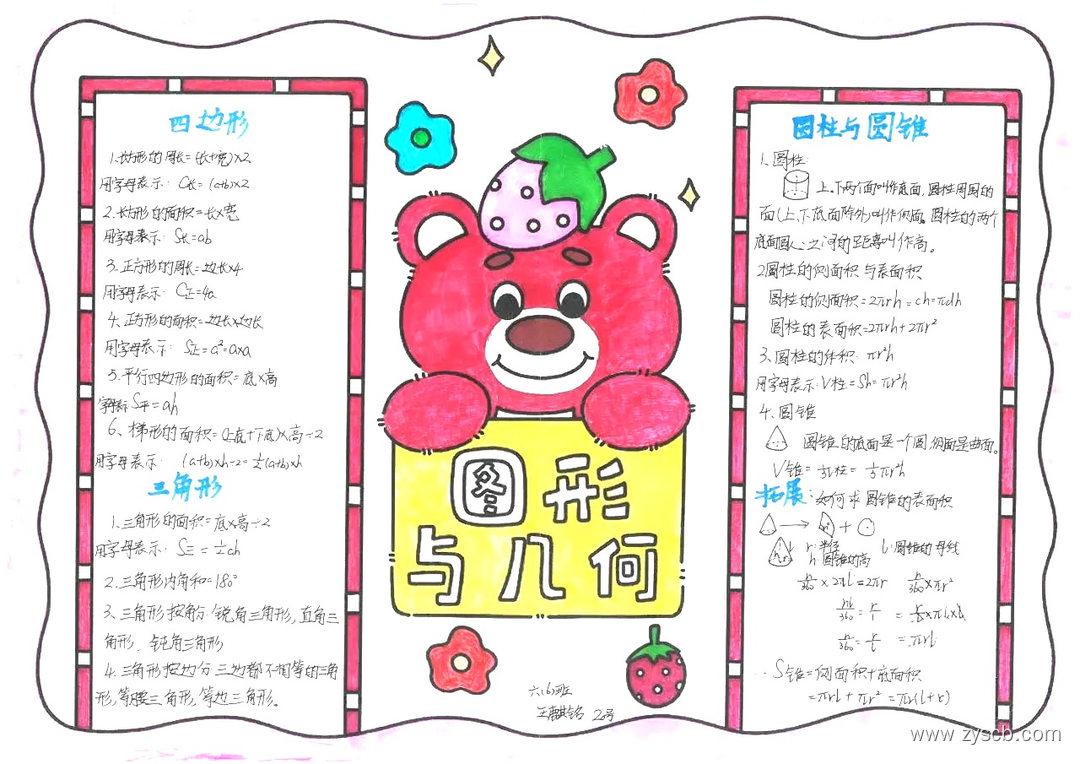 四边形
1.长方形的周长=(长+宽)×2
用字母表示: C长=(a+b)×2
2.长方形的面积=长×宽
用字母表示: S长=ab
3.正方形的周长=边长×4
用字母表示: C正=4a
4.正方形的面积=边长×边长
用字母表示: S正=a²=a×a
5.平行四边形的面积=底×高
S平=ah
6、梯形的面积=(上底+下底)×高÷2
用字母表示: (a+b)×h÷2=½(a+b)×h
三角形
1.三角形的面积=底×高÷2
用字母表示: S三=½ah
2.三角形内角和=180°
3、三角形按角分:锐角三角形,直角三
角形,钝角三角形
4.三角形按边分三边都不相等的三角
形,等腰三角形,等边三角形。
图形
与几何
六(6)班
20号
圆柱与圆锥
1、圆柱:
上、下两个面叫作底面,圆柱周围的
面(上、下底面除外)叫作侧面,圆柱的两个
底面圆心之间的距离叫作高。
2圆柱的侧面积与表面积
圆柱的侧面积=2πrh=ch=πdh
圆柱的表面积=2πrh+2πr²
3、圆柱的体积: πr²h
用字母表示:V柱=Sh=πr²h
4、圆锥
圆锥的底面是一个圆,侧面是曲面。
V锥=⅓V柱=⅓πr²h
拓展:如何求圆锥的表面积
→ +
r:半径 l:圆锥的母线
h:圆锥的高
n/360×2πl=2πr
n/360=r/l
=πrl
S锥=侧面积+底面积
=πrl+πr²=πr(l+r)
www.zyscb.com